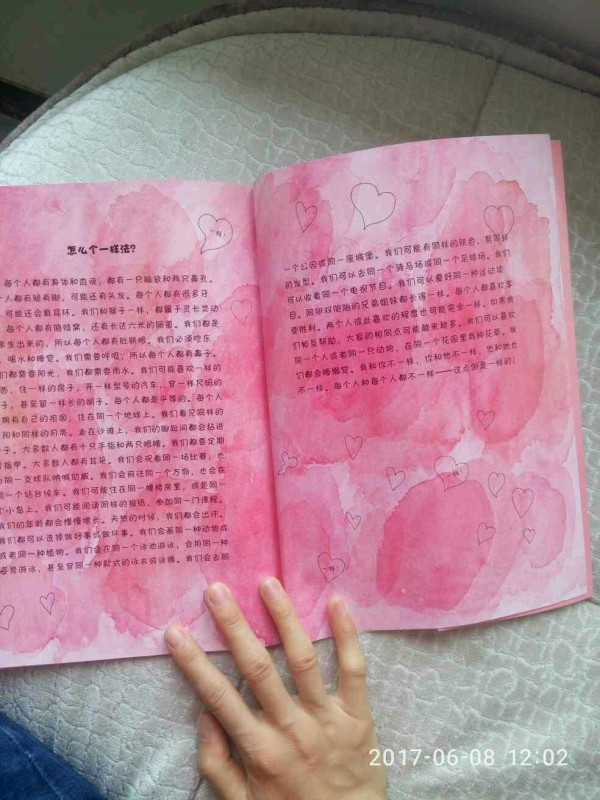 怎么个一样法？
一样！
每个人都有身体和血液，都有一只脑袋和两只鼻孔。
个人都有腿有脚，可能还有头发。每个人都有很多牙
可能还会戴耳环。我们和猴子一样，都属于灵长类动
每个人都有胳肢窝，还有长达六米的肠道。我们都是
来生出来的，所以每个人都有肚脐眼。我们必须吃东
喝水和睡觉。我们需要呼吸，所以每个人都有鼻子。
们都需要阳光，我们都需要雨水。我们可能喜欢一样的
西，住一样的房子，开一样型号的汽车，穿一样尺码的
子，甚至留一样长的胡子。每个人都是平等的。每个人
拥有自己的祖国，住在同一个地球上。我们看见同样的
阳和同样的月亮。走在沙滩上，我们的脚趾间都会钻进
子。大多数人都有十只手指和两只眼睛。我们都要定期
指甲。大多数人都有耳朵。我们会观看同一场比赛，也
为同一支球队呐喊助威。我们会前往同一个方向，也会在
同一个站台候车。我们可能住在同一幢楼房里，或是同一
个小岛上。我们可能阅读同样的报纸，参加同一门课程。
我们的年龄都会慢慢增长。天热的时候，我们都会出汗。
们都可以选择做好事或做坏事。我们会画同一种动物或
或者同一种植物。我们会在同一个泳池游泳，会用同一种
姿势游泳，甚至穿同一种款式的泳衣或泳裤。我们会去同
一个公园或同一座城堡。我们可能有同样的肤色，剪同样
的发型。我们可以去同一个骑马场或同一个足球场。我们
可以收看同一个电视节目。我们可以爱好同一种运动项
目。同卵双胞胎的兄弟姐妹都长得一样。每个人都喜欢享
受胜利。两个人彼此喜欢的程度也可能完全一样。如果我
们相互鼓励，大家的相同点可能越来越多。我们可以喜欢
同一个人或者同一只动物，在同一个花园里栽种花草。我
们都会睡懒觉。我和你不一样，你和他不一样，他和她也
不一样。每个人和每个人都不一样——这点倒是一样的！
一样！
一样！
2017-06-08 12:02